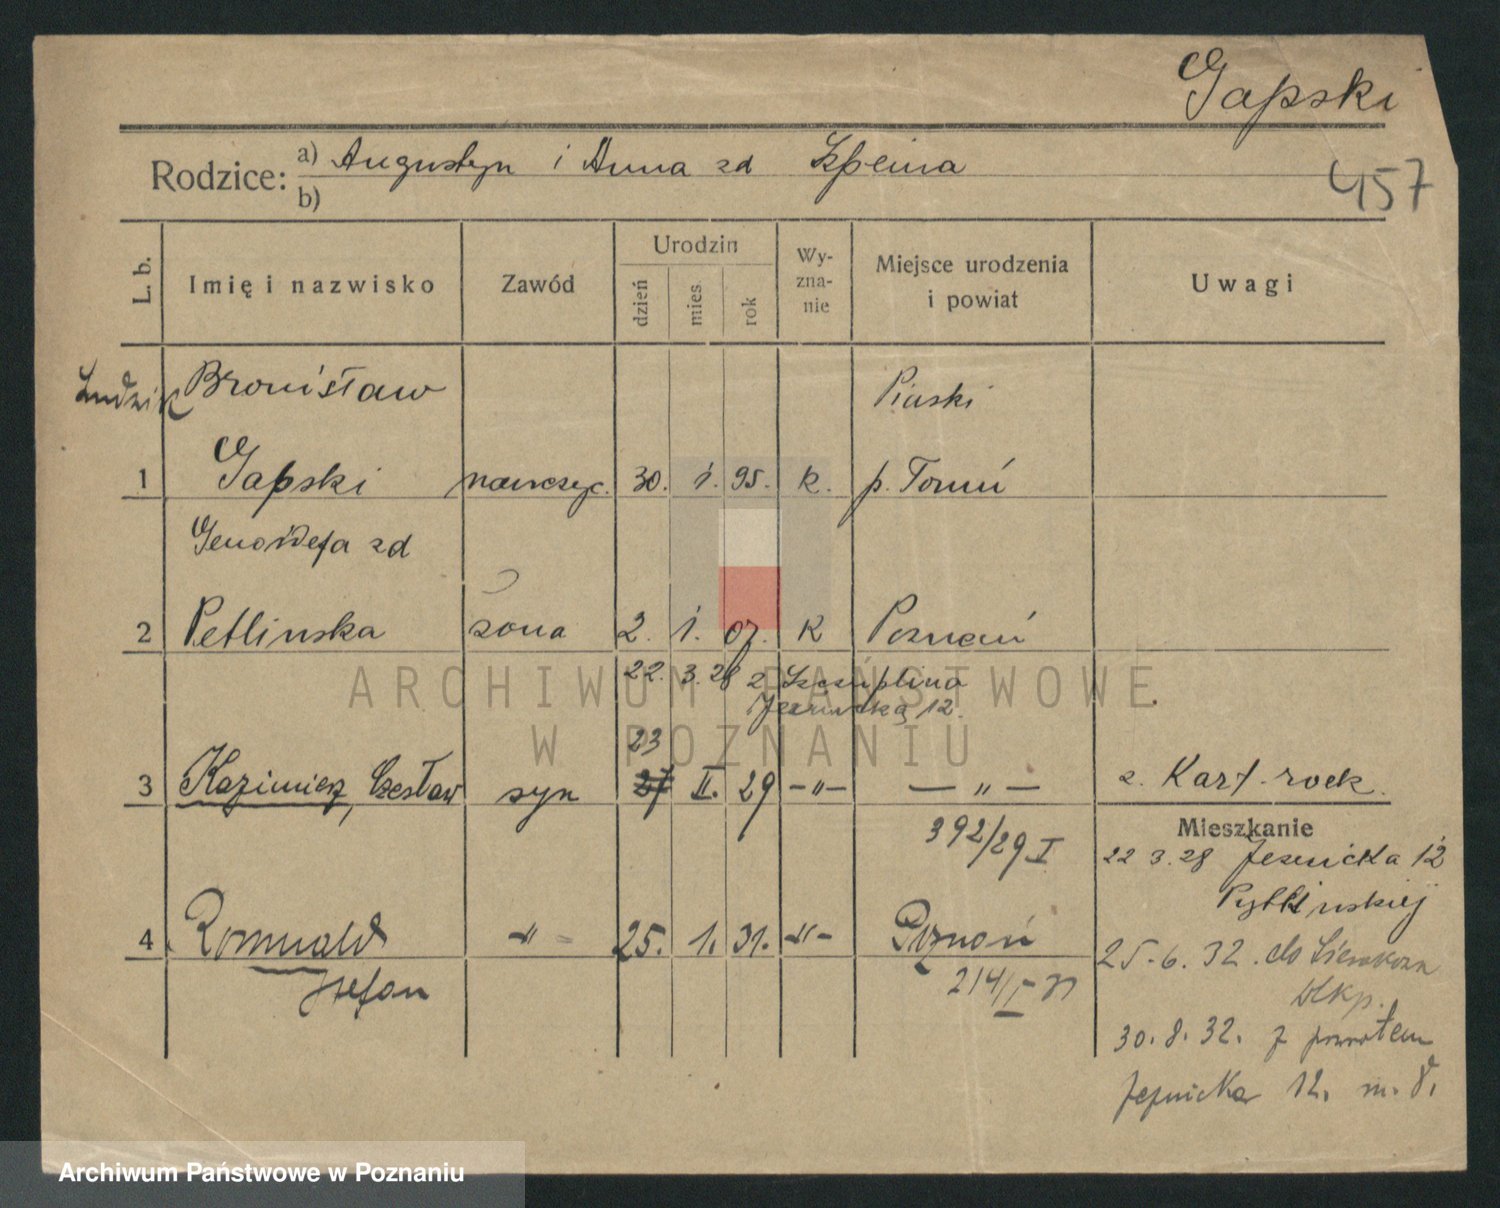 Gapski
457
Rodzice: a) Augustyn i Anna zd
b)
L. b.
Imię i nazwisko
Zawód
Urodzin
dzień
mies.
rok
Wy-
zna-
nie
Miejsce urodzenia
i powiat
Uwagi
Ludzik Bronisław Piaski
1 Gapski 30. 1. 95. k. p. Toruń
Genowefa zd
2 Petlinska żona 2. 1. 07. K Poznań
22. 3. 28 z Szczuplina
12.
23
3 Kazimierz, Czesław syn 27 II. 29 -"- - " - z. Kart. rock.
392/29 I
Mieszkanie
22 3. 28 Jesnicka 12
4 Romuald " 25. 1. 31. -"- Poznań
Stefan
25.6.32. do
Wlkp.
30.8.32. z powrotem
Jeżnicka 12. m. 8.
ARCHIWUM PAŃSTWOWE
W POZNANIU
Archiwum Państwowe w Poznaniu